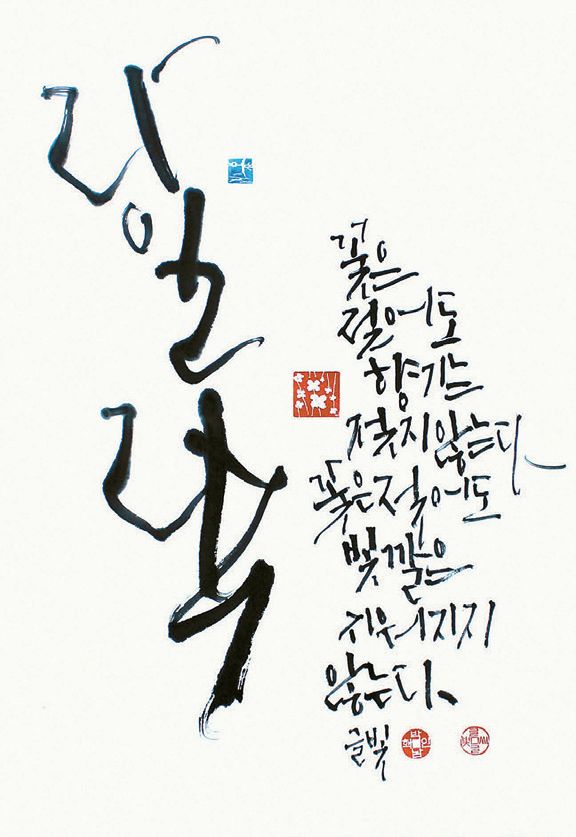 라일락
꽃은
젖어도
향기는
젖지않는다
꽃은젖어도
빛깔은
지워지지
않는다.
글빛